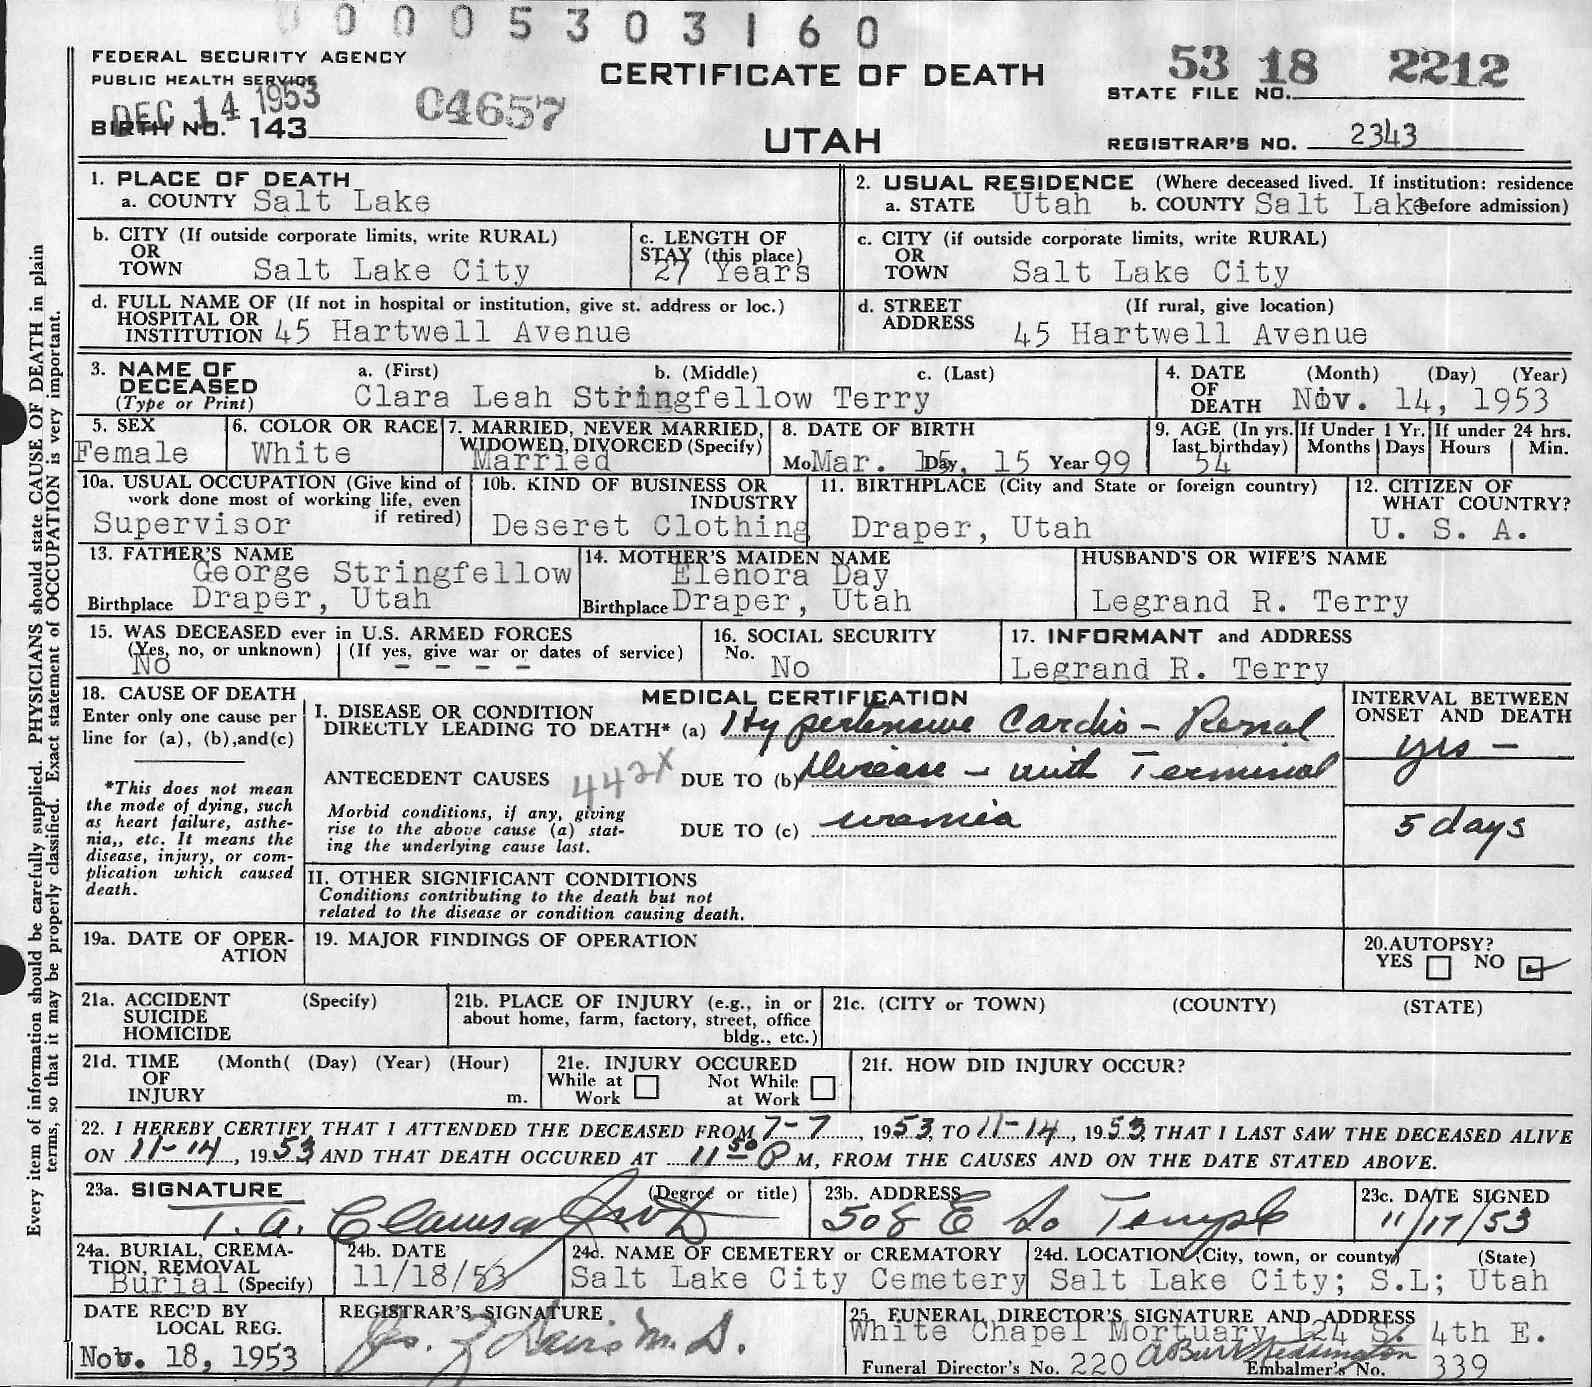 0005303160
FEDERAL SECURITY AGENCY
PUBLIC HEALTH SERVICE
DEC 14 1953
BIRTH NO. 143
04657
CERTIFICATE OF DEATH
UTAH
53 18 2212
STATE FILE NO.
REGISTRAR'S NO. 2343
1. PLACE OF DEATH
a. COUNTY Salt Lake
2. USUAL RESIDENCE (Where deceased lived. If institution: residence before admission)
a. STATE Utah b. COUNTY Salt Lake
b. CITY (If outside corporate limits, write RURAL)
OR
TOWN Salt Lake City
c. LENGTH OF
STAY (this place)
27 Years
c. CITY (if outside corporate limits, write RURAL)
OR
TOWN Salt Lake City
d. FULL NAME OF (If not in hospital or institution, give st. address or loc.)
HOSPITAL OR
INSTITUTION 45 Hartwell Avenue
d. STREET (If rural, give location)
ADDRESS 45 Hartwell Avenue
3. NAME OF
DECEASED
(Type or Print)
a. (First) b. (Middle) c. (Last)
Clara Leah Stringfellow Terry
4. DATE (Month) (Day) (Year)
OF
DEATH Nov. 14, 1953
5. SEX
Female
6. COLOR OR RACE
White
7. MARRIED, NEVER MARRIED,
WIDOWED, DIVORCED (Specify)
Married
8. DATE OF BIRTH
Mo Mar. 15, Day 15 Year 99
9. AGE (In yrs. last birthday)
54
If Under 1 Yr.
Months Days
If under 24 hrs.
Hours Min.
10a. USUAL OCCUPATION (Give kind of
work done most of working life, even
if retired)
Supervisor
10b. KIND OF BUSINESS OR
INDUSTRY
Deseret Clothing
11. BIRTHPLACE (City and State or foreign country)
Draper, Utah
12. CITIZEN OF
WHAT COUNTRY?
U. S. A.
13. FATHER'S NAME
George Stringfellow
Birthplace Draper, Utah
14. MOTHER'S MAIDEN NAME
Elenora Day
Birthplace Draper, Utah
HUSBAND'S OR WIFE'S NAME
Legrand R. Terry
15. WAS DECEASED ever in U.S. ARMED FORCES
(Yes, no, or unknown) (If yes, give war or dates of service)
No - - - -
16. SOCIAL SECURITY
No. No
17. INFORMANT and ADDRESS
Legrand R. Terry
18. CAUSE OF DEATH
Enter only one cause per
line for (a), (b),and(c)
*This does not mean
the mode of dying, such
as heart failure, asthe-
nia,, etc. It means the
disease, injury, or com-
plication which caused
death.
MEDICAL CERTIFICATION
I. DISEASE OR CONDITION
DIRECTLY LEADING TO DEATH* (a) Hypertensive Cardio - Renal
ANTECEDENT CAUSES 442X DUE TO (b) Disease - with Terminal
Morbid conditions, if any, giving
rise to the above cause (a) stat-
ing the underlying cause last.
DUE TO (c) uremia
INTERVAL BETWEEN
ONSET AND DEATH
yrs -
5 days
II. OTHER SIGNIFICANT CONDITIONS
Conditions contributing to the death but not
related to the disease or condition causing death.
19a. DATE OF OPER-
ATION
19. MAJOR FINDINGS OF OPERATION
20.AUTOPSY?
YES NO
21a. ACCIDENT (Specify)
SUICIDE
HOMICIDE
21b. PLACE OF INJURY (e.g., in or
about home, farm, factory, street, office
bldg., etc.)
21c. (CITY or TOWN) (COUNTY) (STATE)
21d. TIME (Month( (Day) (Year) (Hour)
OF
INJURY m.
21e. INJURY OCCURED
While at Work Not While at Work
21f. HOW DID INJURY OCCUR?
22. I HEREBY CERTIFY THAT I ATTENDED THE DECEASED FROM 7-7, 1953, TO 11-14, 1953, THAT I LAST SAW THE DECEASED ALIVE
ON 11-14, 1953 AND THAT DEATH OCCURED AT 11 50 P M, FROM THE CAUSES AND ON THE DATE STATED ABOVE.
23a. SIGNATURE (Degree or title)
23b. ADDRESS
508 E So Temple
23c. DATE SIGNED
11/17/53
24a. BURIAL, CREMA-
TION, REMOVAL
Burial (Specify)
24b. DATE
11/18/53
24c. NAME OF CEMETERY or CREMATORY
Salt Lake City Cemetery
24d. LOCATION (City, town, or county) (State)
Salt Lake City; S.L; Utah
DATE REC'D BY
LOCAL REG.
Nov. 18, 1953
REGISTRAR'S SIGNATURE
25. FUNERAL DIRECTOR'S SIGNATURE AND ADDRESS
White Chapel Mortuary 124 S. 4th E.
Funeral Director's No. 220 Embalmer's No. 339
Every item of information should be carefully supplied. PHYSICIANS should state CAUSE OF DEATH in plain
terms, so that it may be properly classified. Exact statement of OCCUPATION is very important.